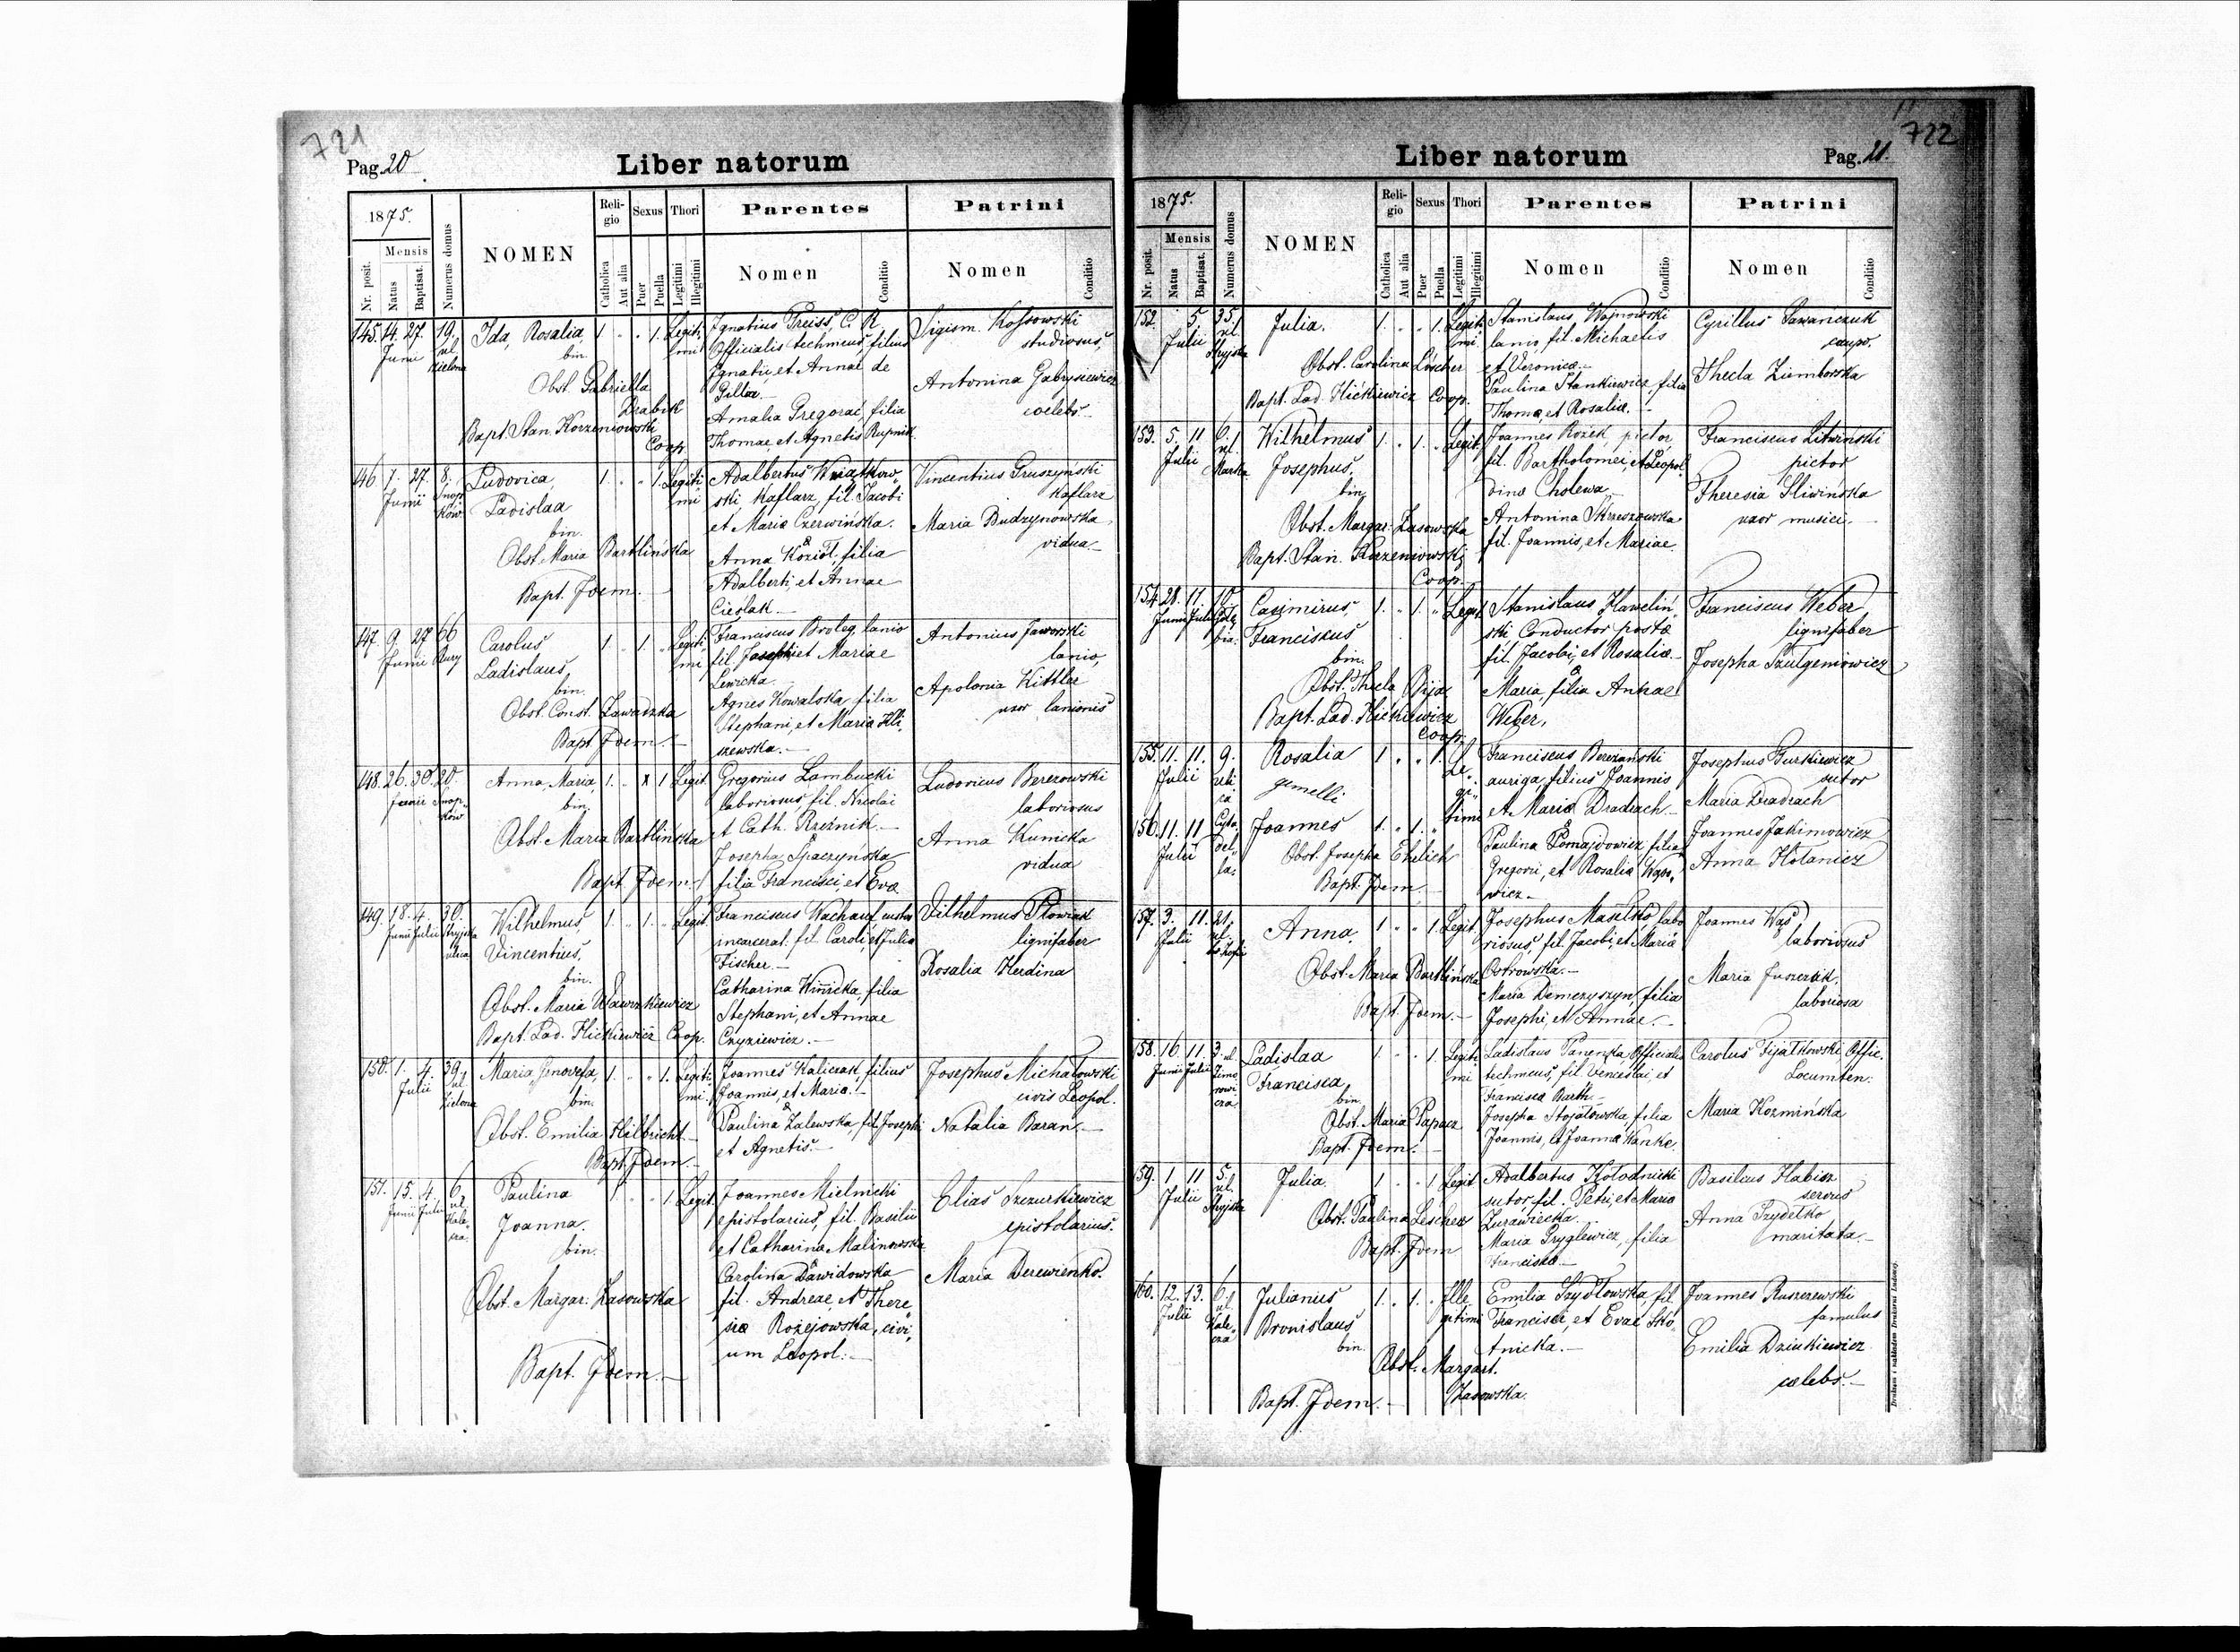 721
Pag. 20
Liber natorum
1875.
Mensis
Nr. posit.
Natus
Baptisat.
Numerus domus
NOMEN
Religio
Catholica
Aut alia
Sexus
Puer
Puella
Thori
Legitimi
Illegitimi
Parentes
Nomen
Conditio
Patrini
Nomen
Conditio
145. 14. 27. 19.
Junii ul. Zielona
Ida, Rosalia,
bin.
Obst. Gabriella
Drabik
Bapt. Stan. Korzeniowski
Coop.
1. " " 1. Legiti
mi
Ignatius Preiss, C. R.
Officialis techmeus, filius
Ignatii, et Annae de
Piller.
Amalia Gregorać, filia
Thomae, et Agnetis Rupnik
Sigism. Kossowski
studiosus,
Antonina Gabrysiewicz
coelebs
146. 7. 27. 8.
Junii Snop
ków
Ludovica,
Ladislaa
bin.
Obst. Maria Bartlińska
Bapt. Idem.
1. " " 1. Legiti
mi
Adalbertus Wziątkow
ski Kaflarz, fil. Jacobi
et Maria Czerwińska.
&
Anna Kozioł, filia
Adalberti, et Annae
Cieślak.
Vincentius Gruszyński
Kaflarz
Maria Budzynowska
vidua
147. 9. 27. 66
Junii Rury
Carolus
Ladislaus,
bin.
Obst. Const. Zawadzka
Bapt. Idem.
1. " 1. " Legiti
mi
Franciscus Broleg, lanio
fil. Josephi et Mariae
Lewicka.
Agnes Kowalska, filia
Stephani, et Maria Kli
szewska.
Antonius Jaworski
lanio,
Apolonia Kittler
uxor lanionis
148. 26. 30. 20.
Junii Snop
ków
Anna, Maria,
bin.
Obst. Maria Bartlińska
Bapt. Idem.
1. " x 1 Legit.
Gregorius Lambucki
laboriosus, fil. Nicolai
et Cath. Rzeźnik.
Josepha Spaczyńska
filia Francisci, et Eva
Ludovicus Bererowski
laboriosus
Anna Kunicka
vidua
149. 18. 4. 30.
Junii Julii Stryjska
ulica
Wilhelmus,
Vincentius,
bin.
Obst. Maria Wawrzkiewicz
Bapt. Lad. Hickiewicz Coop.
1. " 1. " Legit.
Franciscus Wachauf custos
incarcerat. fil. Caroli, et Julia
Fischer.
Catharina Winnicka, filia
Stephani, et Annae
Czyziewicz.
Vilhelmus Płowiak
lignifaber
Rosalia Herdina
150. 1. 4. 39.
Julii ul.
Zielona
Maria, Genovefa,
bin.
Obst. Emilia Hilbricht
Bapt. Idem.
1. " " 1. Legiti
mi.
Joannes Kaliczak, filius
Joannis, et Maria.
&
Paulina Zalewska, fil. Josephi
et Agnetis.
Josephus Michałowski
civis Leopol.
Natalia Baran.
151. 15. 4. 6.
Junii Julii ul.
Kale
cza.
Paulina
Joanna.
bin.
Obst. Margar. Zasowska
Bapt. Idem.
1. " " 1 Legit.
Joannes Mielnicki
epistolarius, fil. Basilii
et Catharina Malinowska
&
Carolina Dawidowska
fil. Andreae, et There
sia Rożejowska, civi
um Leopol.
Elias Szczurkiewicz
epistolarius.
Maria Derewienko.
722
Liber natorum
Pag. 21.
1875.
Mensis
Nr. posit.
Natus
Baptisat.
Numerus domus
NOMEN
Religio
Catholica
Aut alia
Sexus
Puer
Puella
Thori
Legitimi
Illegitimi
Parentes
Nomen
Conditio
Patrini
Nomen
Conditio
152. 5 35.
Julii ul.
Stryjska
Julia.
Obst. Carolina Löscher
Bapt. Lad. Hickiewicz Coop.
1. " " 1. Legiti
mi.
Stanislaus Wajnowski
lanio, fil. Michaelis
et Veronica.
Paulina Stankiewicz, filia
Thoma, et Rosalia.
Cyrillus Sawanczuk
caupo.
Thecla Ziemborska
153. 5. 11 6.
Julii ul.
Wilhelmus
Josephus.
bin.
Obst. Margar. Zasowska
Bapt. Stan. Korzeniowski
Coop.
1. " 1. " Legit.
Joannes Rożek, pictor,
fil. Bartholomei, et Leopol
dina Cholewa,
Antonina Skrzeszowska
fil. Joannis, et Mariae.
Franciscus Litwiński
pictor
Theresia Śliwińska
uxor musici.
154. 28. 11. 10.
Junii Julii
Casimirus
Franciskus
bin.
Obst. Thecla Pijar
Bapt. Lad. Hickiewicz
Coop.
1. " 1. " Legit.
Stanislaus Hawelin
ski, Conductor posta
fil. Jacobi, et Rosalia
&
Maria, filia Annae
Weber,
Franciscus Weber
lignifaber
Josepha Szulgeniowicz
155. 11. 11. 9.
Julii uli
ca
Rosalia
gemelli
1 " " 1.
156. 11. 11 Cyta
Julii del
la.
Joannes
Obst. Josepha Ehrlich
Bapt. Idem
1. " 1. "
Le
gi
timi
Franciscus Bereżański
auriga, filius Joannis
et Maria Dradrach
&
Paulina Pomajdowicz, filia
Gregorii, et Rosalia Wąso
wicz.
Josephus Gurkiewicz
sutor
Maria Dradrach
Joannes Jakimowicz
Anna Kotanicz
157. 3. 11. 21.
Julii ul.
św. Zofii
Anna.
Obst. Maria Bartlińska
Bapt. Idem.
1 " " 1 Legit.
Josephus Masełko, labo
riosus, fil. Jacobi, et Maria
Ostrowska.
Maria Demczyszyn, filia
Josephi, et Annae.
Joannes Wąs
laboriosus
Maria Juszczak
laboriosa
158. 16. 11. 3. ul.
Junii Julii Zimo
rowi
cza
Ladislaa
Francisca
bin.
Obst. Maria Papacz
Bapt. Idem.
1 " " 1. Legiti
mi
Ladislaus Panenka, Officialis
techmeus, fil. Venceslai, et
Francisca Barth.
Josepha Stojałowska, filia
Joannis, et Joanna Kanka.
Carolus Fijałkowski Offic.
Locumten.
Maria Kozmińska
159. 1 11 5.
Julii ul.
Stryjska
Julia.
Obst. Paulina Lescher
Bapt. Idem
1 " " 1 Legit
Adalbertus Kołodnicki
sutor, fil. Petri, et Maria
Zurawiecka.
Maria Gryglewicz, filia
Franciska
Basilius Habisz
servus
Anna Szydełko
maritata.
160. 12. 13. 6.
Julii ul.
Kale
cza
Julianus
Bronislaus
bin.
Obst. Margart.
Zasowska.
Bapt. Idem.
1. " 1. " Ille
gitimi
Emilia Szydłowska, fil.
Francisci, et Evae Skó
tnicka.
Joannes Ruszczewski
famulus
Emilia Dziukiewicz
coelebs.